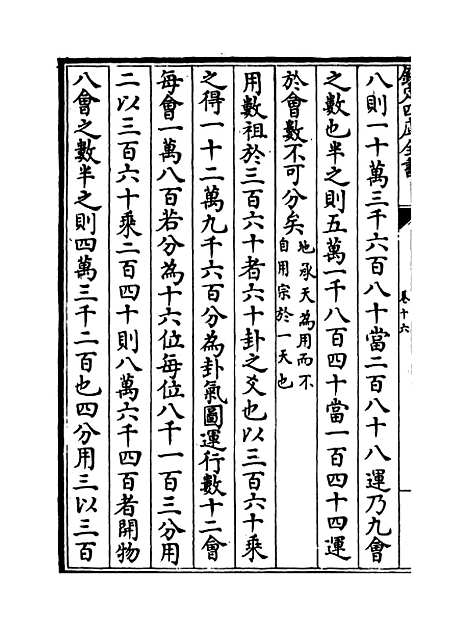 欽定四庫全書
卷十六
八則一十萬三千六百八十當二百八十八運乃九會
之數也半之則五萬一千八百四十當一百四十四運
於會數不可分矣地承天為用而不
自用宗於一天也
用數祖於三百六十者六十卦之爻也以三百六十乘
之得一十二萬九千六百分為卦氣圖運行數十二會
每會一萬八百若分為十六位每位八千一百三分用
二以三百六十乘二百四十則八萬六千四百者開物
八會之數半之則四萬三千二百也四分用三以三百